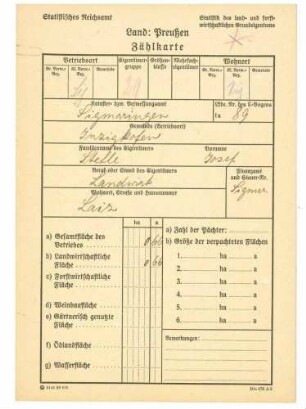 Statistisches Reichsamt
Statistik des land- und forst-
wirtschaftlichen Grundeigentums
Land: Preußen
Zählkarte
Betriebsort
Eigentümer-
gruppe
Größen-
klasse
Mehrfach-
eigentümer
Wohnort
Gemeinde
Gemeinde
Kataster- bzw. Veranlagungsamt
Lfde. Nr. des E-Bogens
Sigmaringen
1a 89
Gemeinde (Betriebsort)
Inzigkofen
Familienname des Eigentümers
Vorname
Stelle
Josef
Beruf oder Stand des Eigentümers
Finanzamt
und Steuer-Nr.
Landwirt
Sigmar.
Wohnort, Straße und Hausnummer
Laiz
ha
a
a) Gesamtfläche des
Betriebes
0 66
b) Landwirtschaftliche
Fläche
0 66
c) Forstwirtschaftliche
Fläche
d) Weinbaufläche
e) Gärtnerisch genutzte
Fläche
f) Ödlandfläche
g) Wasserfläche
a) Zahl der Pächter:
b) Größe der verpachteten Flächen
1. ha a
2. ha a
3. ha a
4. ha a
5. ha a
6. ha a
Bemerkungen: